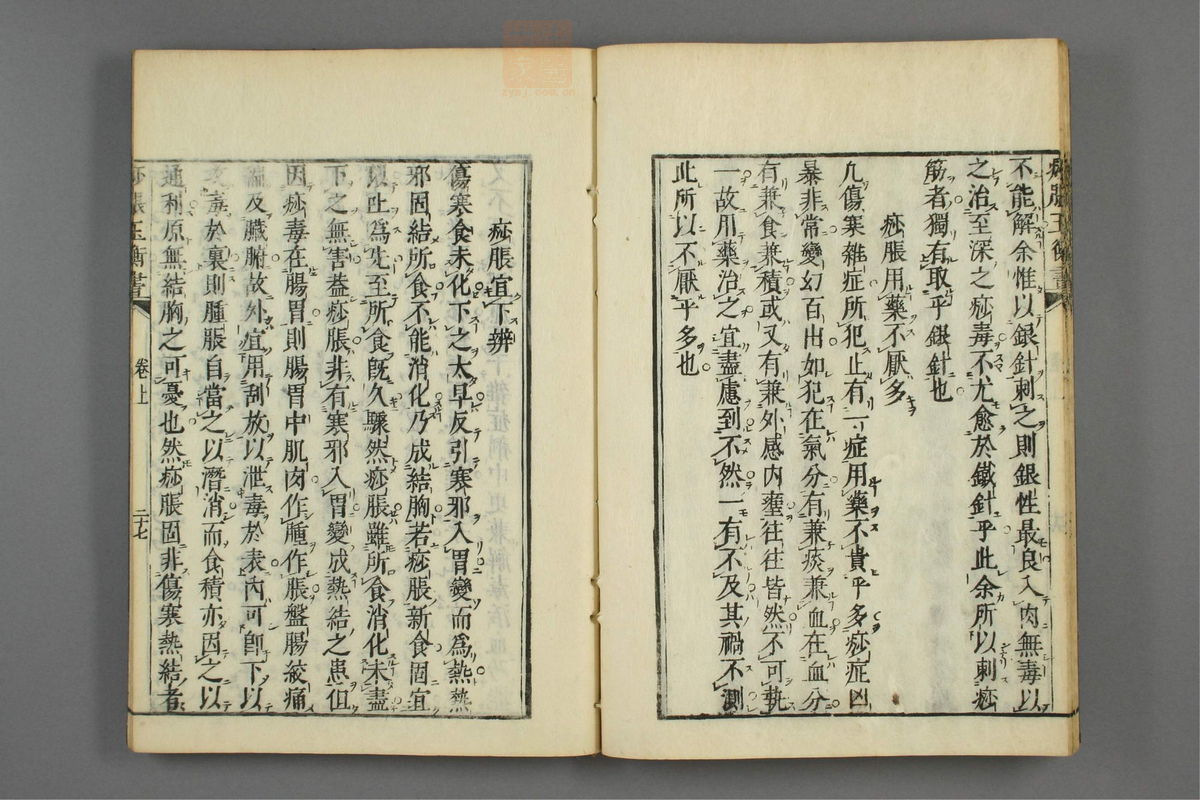 痧脹玉衡書
不能解余惟以銀針刺之則銀性最良入肉無毒以
之治至深之痧毒不尤愈於鐵針乎此余所以刺痧
筋者獨有取乎銀針也
痧脹用藥不厭多
凢傷寒雜症所犯止有一症用藥不貴乎多痧症凶
暴非常變幻百出如犯在氣分有兼痰兼血在血分
有兼食兼積或又有兼外感内壅往往皆然不可執
一故用藥治之宜盡慮到不然一有不及其禍不測
此所以不厭乎多也
痧脹宜下辨
傷寒食未化下之太早反引寒邪入胃變而爲熱熱
邪固結所食不能消化乃成結胸若痧脹新食固宜
以吐爲先至所食旣久驟然痧脹雖所食消化未盡
下之無害葢痧脹非有寒邪入胃變成熱結之患但
因痧毒在腸胃則腸胃中肌肉作腫作脹盤腸絞痛
遍及臟腑故外宜用刮放以泄毒於表內可卽下以
毒於裏則腫脹自當之以潛消而食積亦因之以
通利原無結胸之可憂也然痧脹固非傷寒熱結者
痧脹玉衡書
卷上
二十七
zysj.com.cn